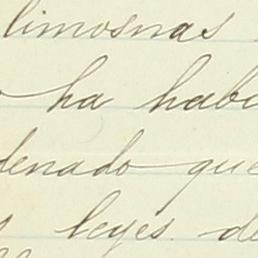 limosnas
ha habi
denado que
leyes de